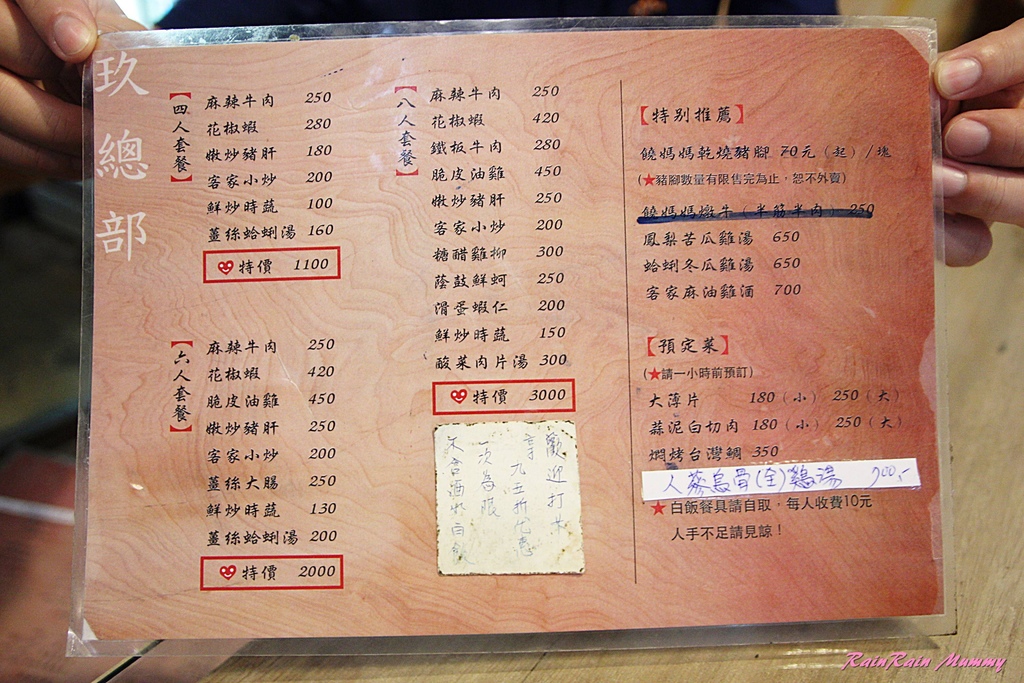 玖總部
【四人套餐】
麻辣牛肉 250
花椒蝦 280
嫩炒豬肝 180
客家小炒 200
鮮炒時蔬 100
薑絲蛤蜊湯 160
特價 1100
【六人套餐】
麻辣牛肉 250
花椒蝦 420
脆皮油雞 450
嫩炒豬肝 250
客家小炒 200
薑絲大腸 250
鮮炒時蔬 130
薑絲蛤蜊湯 200
特價 2000
【八人套餐】
麻辣牛肉 250
花椒蝦 420
鐵板牛肉 280
脆皮油雞 450
嫩炒豬肝 250
客家小炒 200
糖醋雞柳 300
蔭鼓鮮蚵 250
滑蛋蝦仁 200
鮮炒時蔬 150
酸菜肉片湯 300
特價 3000
歡迎打卡
享九五折優惠
一次為限
不含酒水白飯
【特別推薦】
饒媽媽乾燒豬腳 70元（起）/塊
(★豬腳數量有限售完為止，恕不外賣)
饒媽媽燉牛（半筋半肉）250
鳳梨苦瓜雞湯 650
蛤蜊冬瓜雞湯 650
客家麻油雞酒 700
【預定菜】
(★請一小時前預訂)
大薄片 180（小） 250（大）
蒜泥白切肉 180（小） 250（大）
燜烤台灣鯛 350
人蔘烏骨(全)雞湯 900.-
★白飯餐具請自取，每人收費10元
人手不足請見諒！
RainRain Mummy